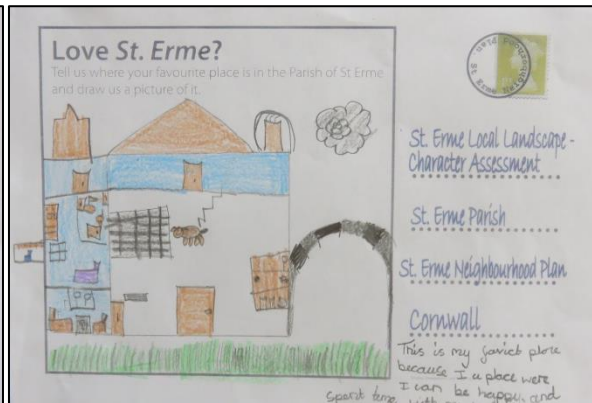 Love St. Erme?
Tell us where your favourite place is in the Parish of St Erme
and draw us a picture of it.
St Erme Neighbourhood Plan
St. Erme Local Landscape -
Character Assessment
St. Erme Parish
St. Erme Neighbourhood Plan
Cornwall
This is my favict place
because I a place were
I can be happy, and
spend time
with